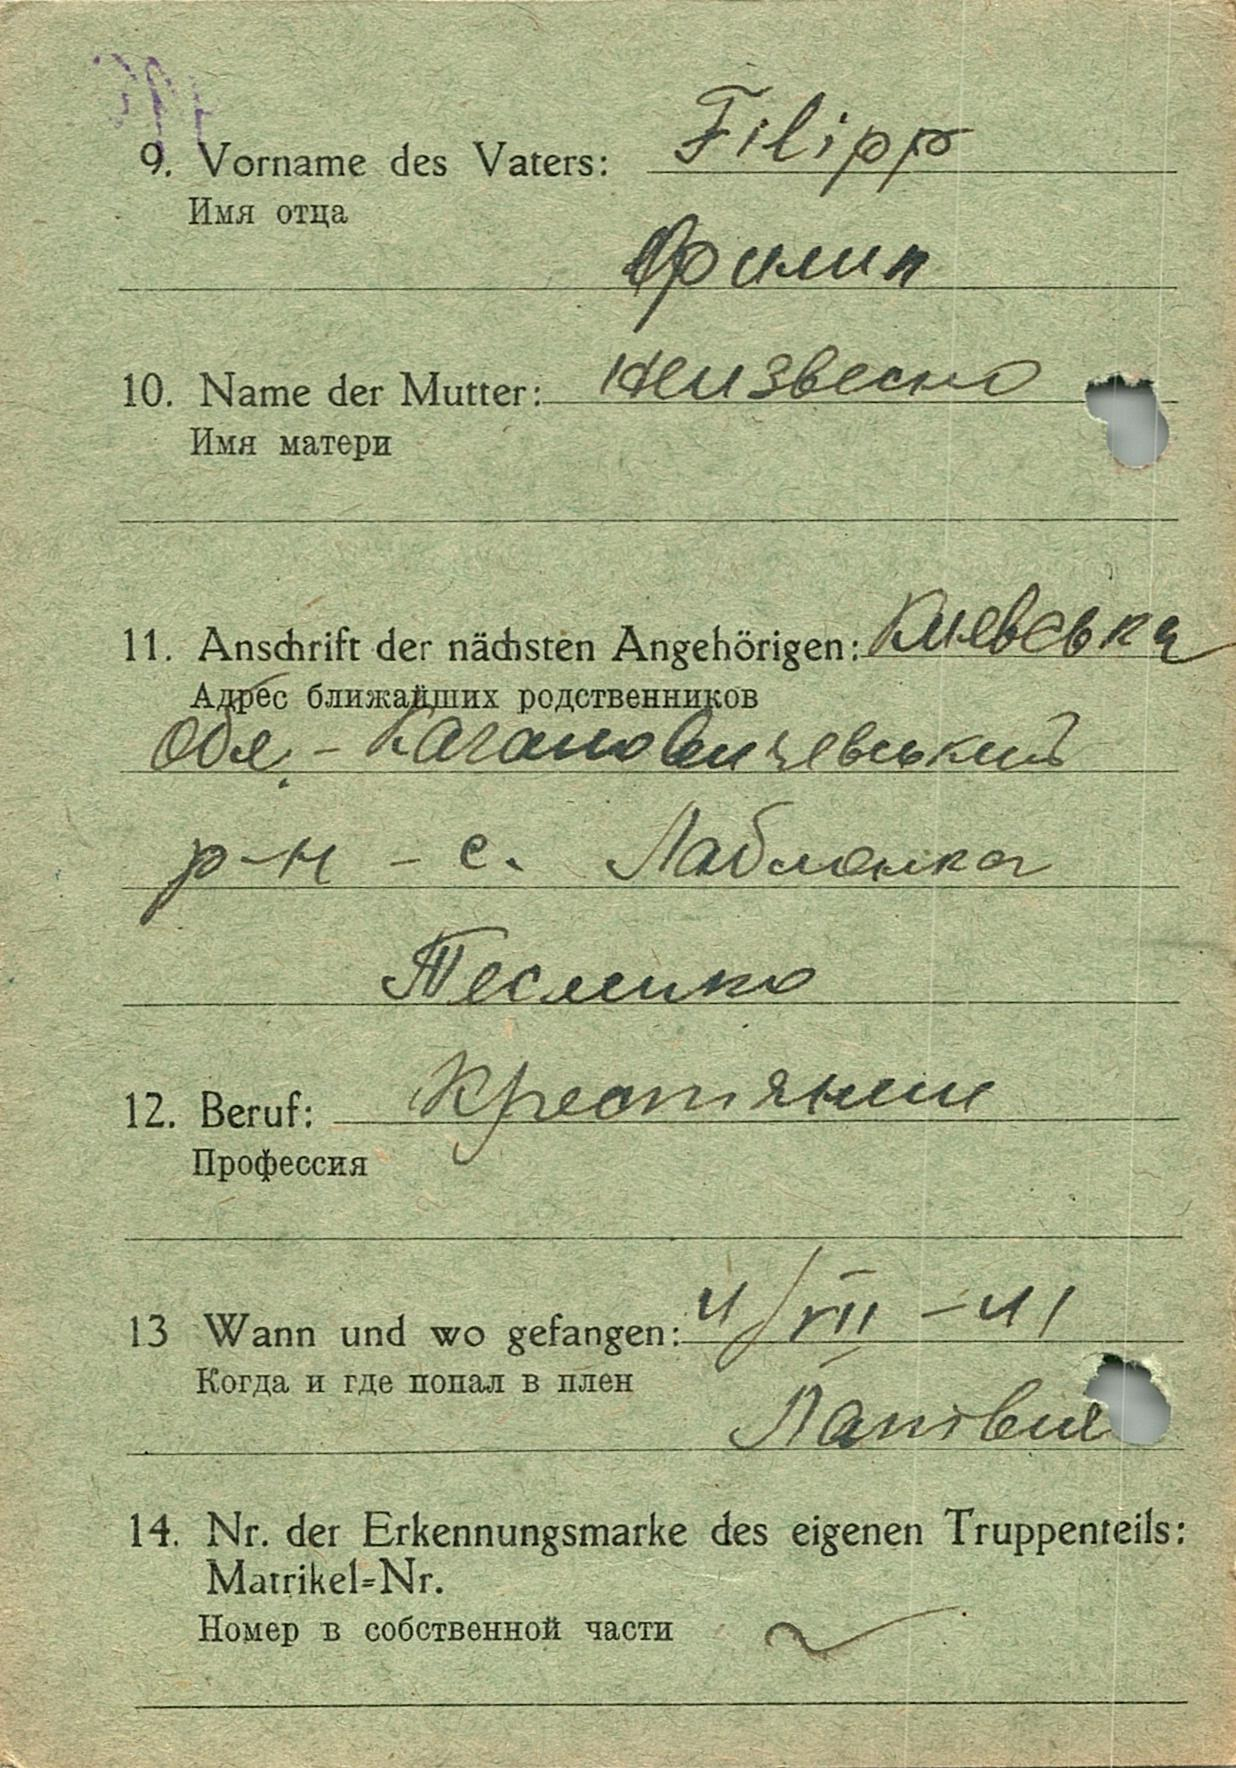 9. Vorname des Vaters: Filipp
Имя отца
Филип
10. Name der Mutter: Неизвесно
Имя матери
11. Anschrift der nächsten Angehörigen: Киевська
Адрес ближайших родственников
Обл. - Кагановичевський
р-н - с. Лаблонка
Теслико
12. Beruf: Крестянин
Профессия
13 Wann und wo gefangen: 4/VII - 41
Когда и где попал в плен
Латвия
14. Nr. der Erkennungsmarke des eigenen Truppenteils:
Matrikel=Nr.
Номер в собственной части